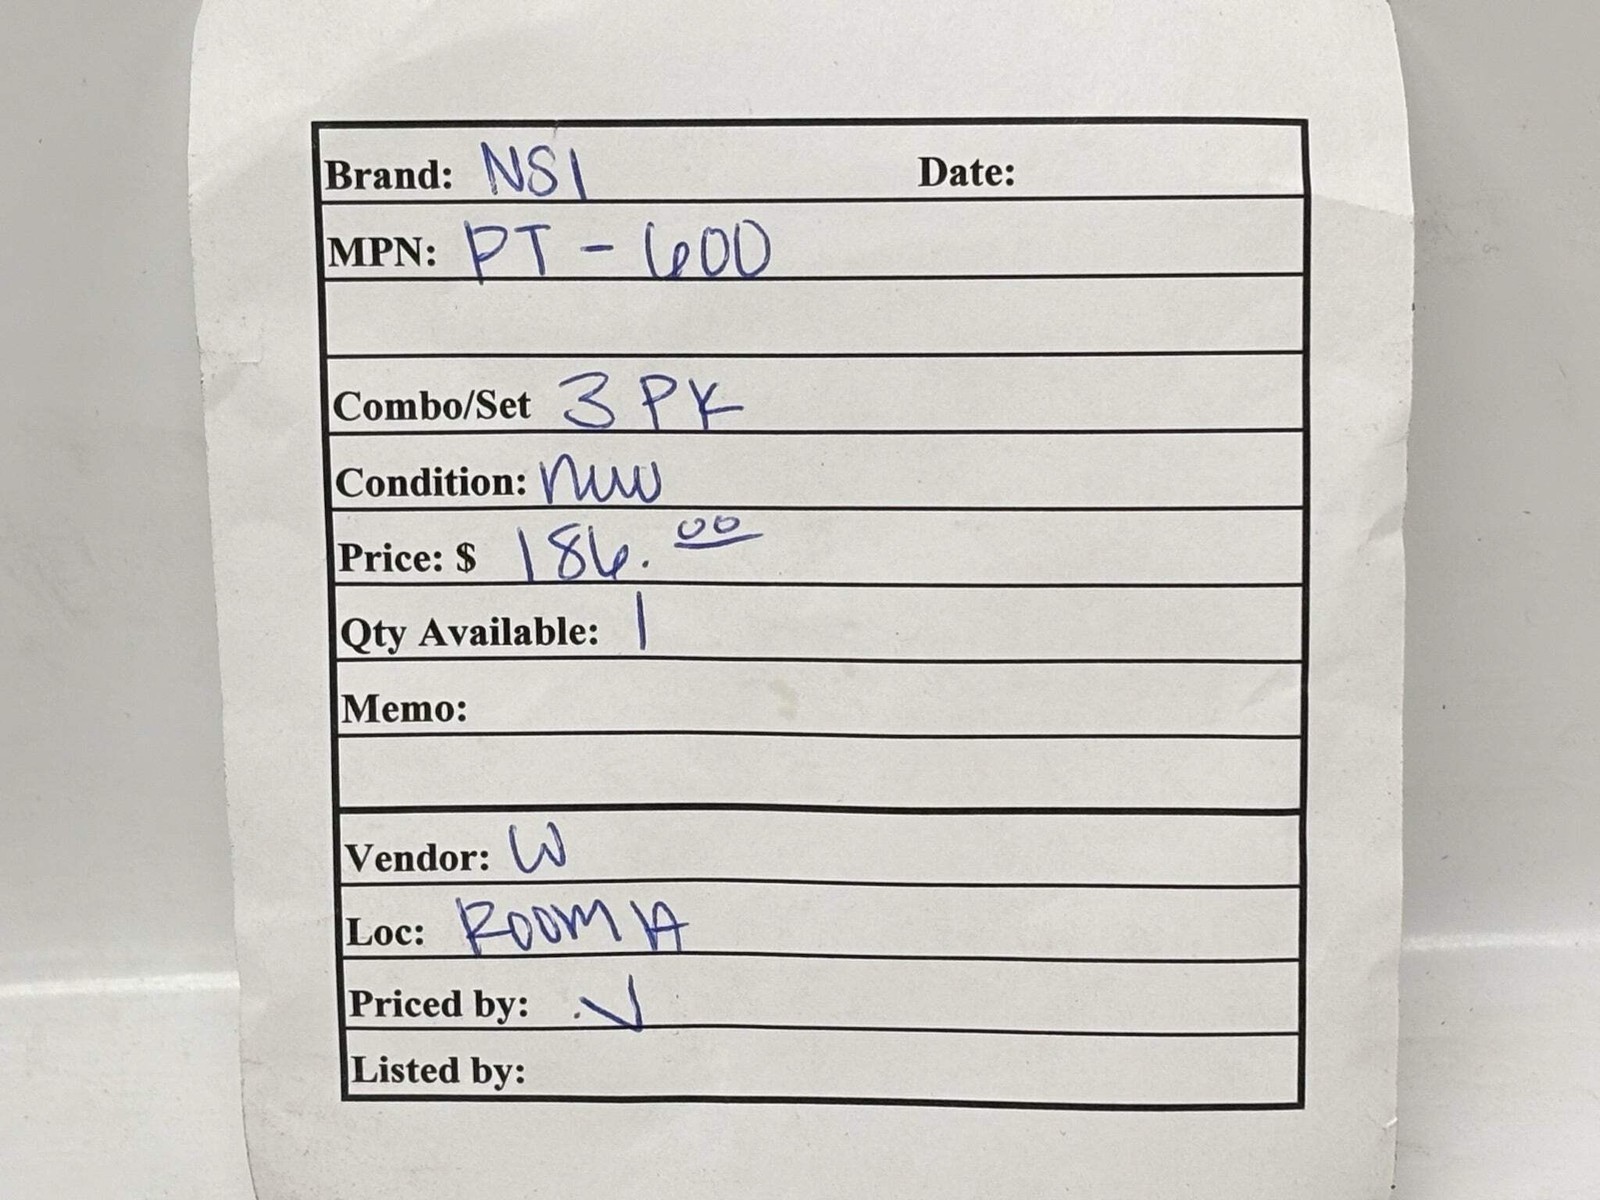 Brand: NSI Date:
MPN: PT-600
Combo/Set 3 PK
Condition: new
Price: $ 186.00
Qty Available: 1
Memo:
Vendor: W
Loc: ROOM A
Priced by: V
Listed by: